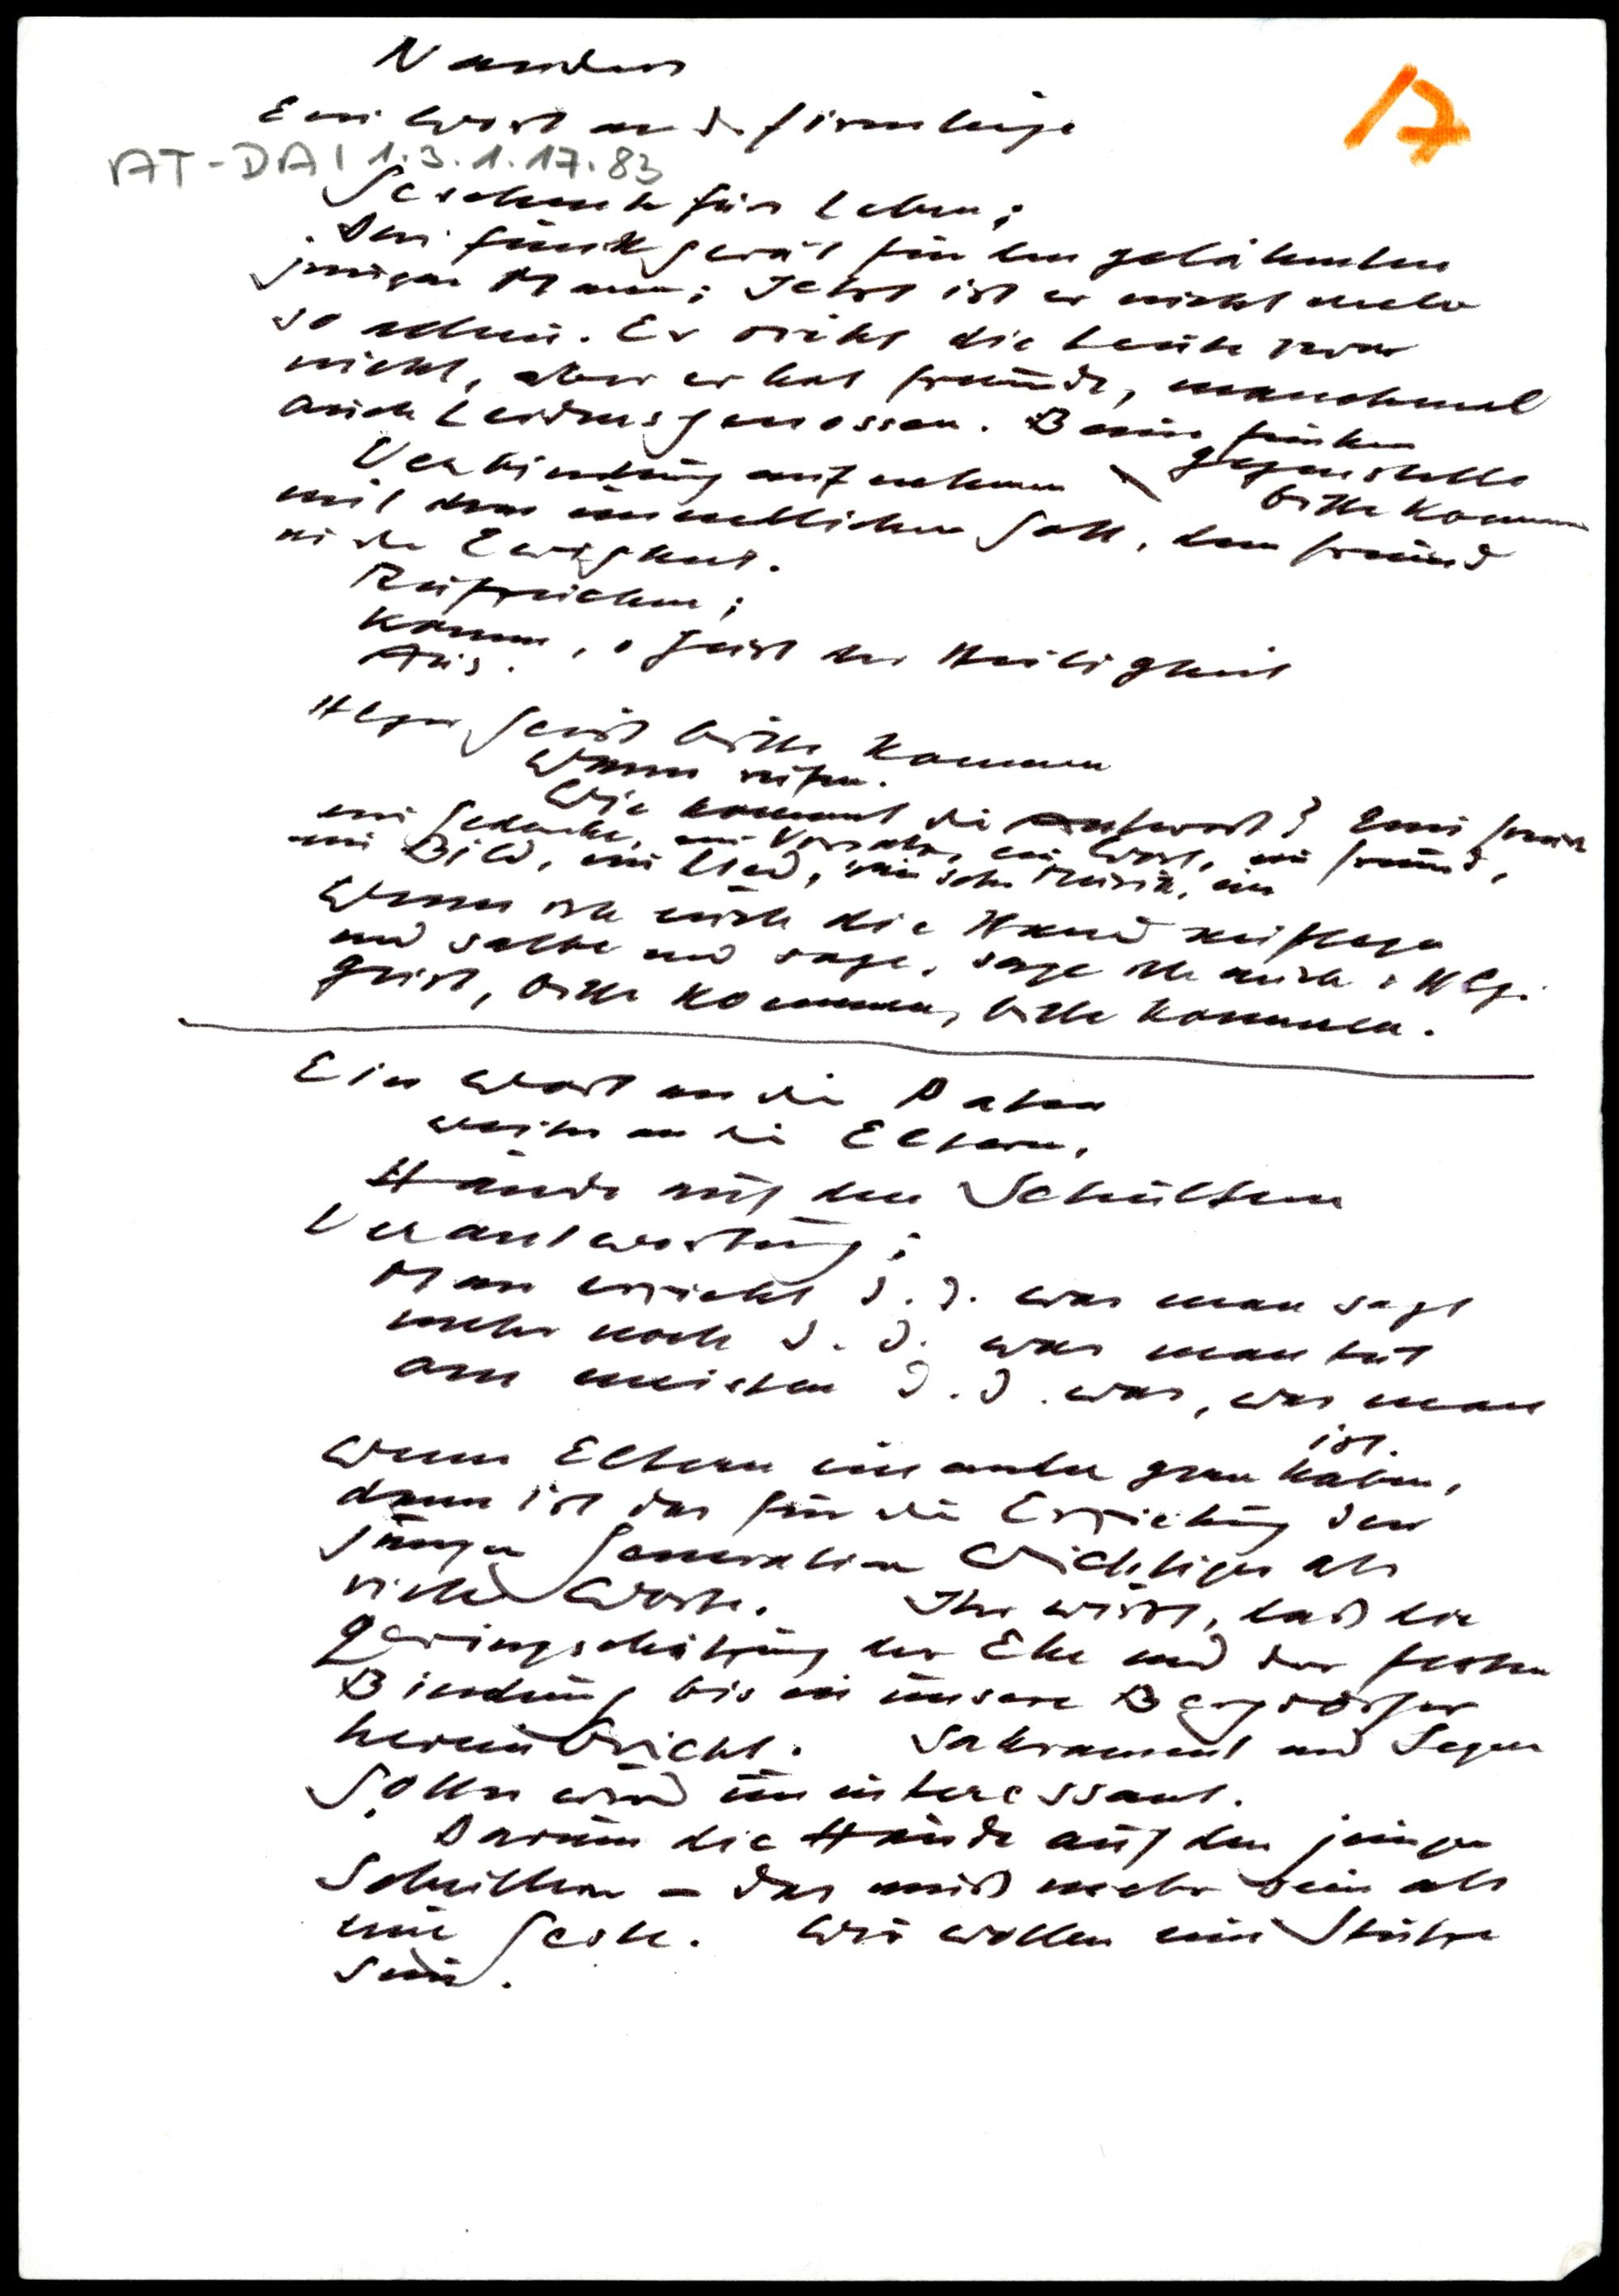 Nauders
17
Ein Wort an d. Firmlinge
AT-DAI 1.3.1.17.83
Geschenk fürs Leben;
Das Funkgerät für den gelähmten
jungen Mann; Jetzt ist er nicht mehr
so allein. Er sieht die Leute zwar
nicht, aber er hat Freunde, manchmal
auch Leidensgenossen. Beim Funken
Gegenstelle
bitte kommen
Verbindung aufnehmen
mit dem unendlichen Gott, dem Freund
in der Ewigkeit.
Rufzeichen;
Komm, o Geist der Heiligkeit
Aus.
Hlger Geist bitte kommen
Wann rufen.
Wie kommt die Antwort? Eine Freude
ein Gedanke, ein Vorsatz, ein Wort, ein Freund,
ein Bild, ein Lied, eine schöne Musik, ein
Wenn ich euch die Hand auflege
und salbe und sage, sage ich auch: Hlg.
Geist, bitte kommen, bitte kommen.
Ein Wort an die Paten
weiter an die Eltern,
Hände auf den Schultern
Verantwortung;
Man erzieht d. d. was man sagt
mehr noch d. d. was man tut
am meisten d. d. was, was man
ist.
Wenn Eltern einander gern haben,
dann ist das für die Erziehung der
jungen Generation wichtiger als
viele Worte. Ihr wisst, daß die
Geringschätzung der Ehe und der festen
Bindung bis in unsere Bergdörfer
hereinbricht. Sakrament und Segen
Gottes wird uninteressant.
Darum die Hände auf den jungen
Schultern - das muß mehr sein als
eine Geste. Wir wollen eine Stütze
sein.